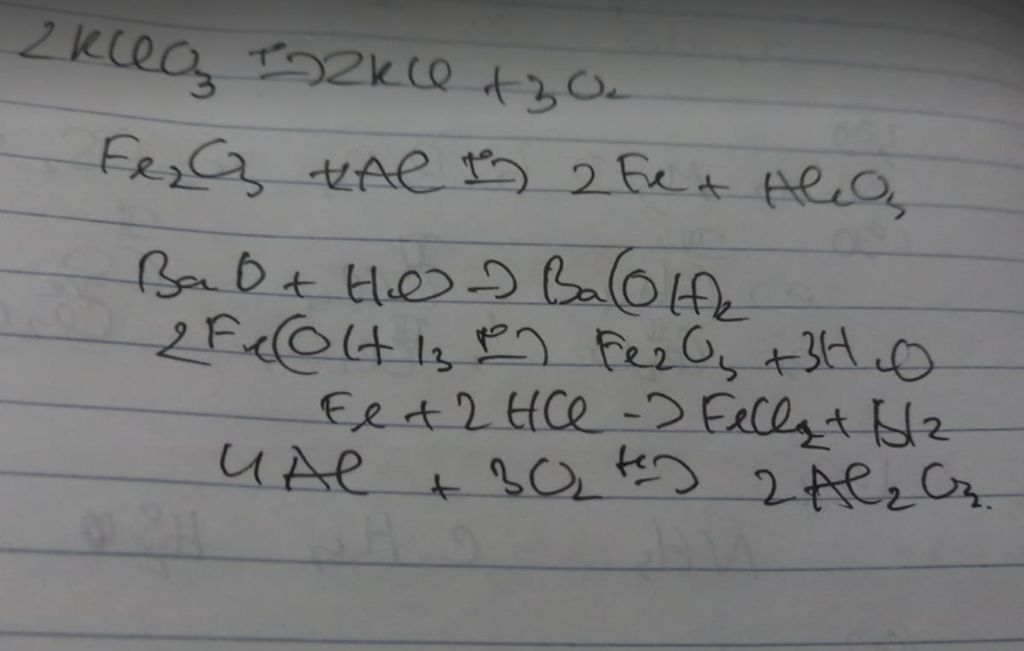 2KClO₃ t°→ 2KCl + 3O₂
Fe₂O₃ + 2Al t°→ 2Fe + Al₂O₃
BaO + H₂O → Ba(OH)₂
2Fe(OH)₃ t°→ Fe₂O₃ + 3H₂O
Fe + 2HCl → FeCl₂ + H₂
4Al + 3O₂ t°→ 2Al₂O₃.